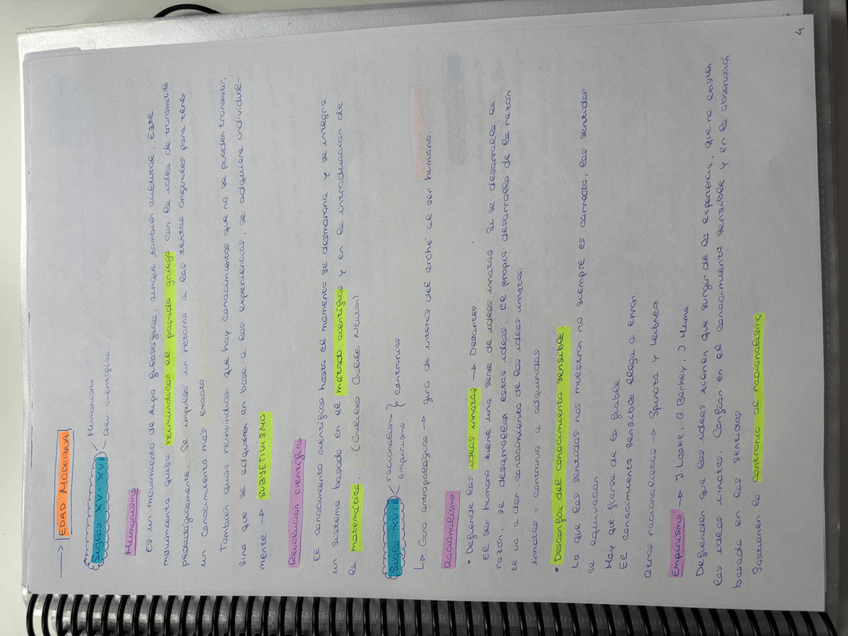 4
→ EDAD MODERNA
Siglos XV-XVI < Humanismo
Rev. científica
Humanismo
Es un movimiento de tipo filosófico, aunque también cultural. Este
movimiento quiso reivindicar el pasado griego con la idea de transmitirlo
pedagógicamente. Se impulsó un retorno a los textos originales para tener
un conocimiento más exacto
También quiso reivindicar que hay conocimientos que no se pueden transmitir,
sino que se adquieren en base a las experiencias, se adquiere individual-
mente → SUBJETIVISMO
Revolución científica
El conocimiento científico hasta el momento se desmorona y se integra
un sistema basado en el método científico y en la introducción de
la matemática. (Galileo Galilei, Newton)
Siglo XVII < racionalismo } contrarios
empirismo
↳ Giro antropológico → giro de interés del arché al ser humano
Racionalismo
• Defiende las ideas innatas → Descartes
El ser humano tiene una serie de ideas innatas. Si se desarrolla la
razón, se desarrollan estas ideas. El propio desarrollo de la razón
te va a dar conocimiento de las ideas innatas.
innato = contrario a adquiridas
• Desconfía del conocimiento sensible:
Lo que los sentidos nos muestran no siempre es correcto, los sentidos
se equivocan
Hay que fiarse de lo fiable
El conocimiento sensible llega a error.
Otros racionalistas → Spinoza y Leibniz
Empirismo → J Locke, G Barkey, J Hume.
Defienden que las ideas tienen que surgir de la experiencia, que no existen
las ideas innatas. Confían en el conocimiento sensible y en la observación,
basada en los sentidos
Sostienen lo contrario al racionalismo